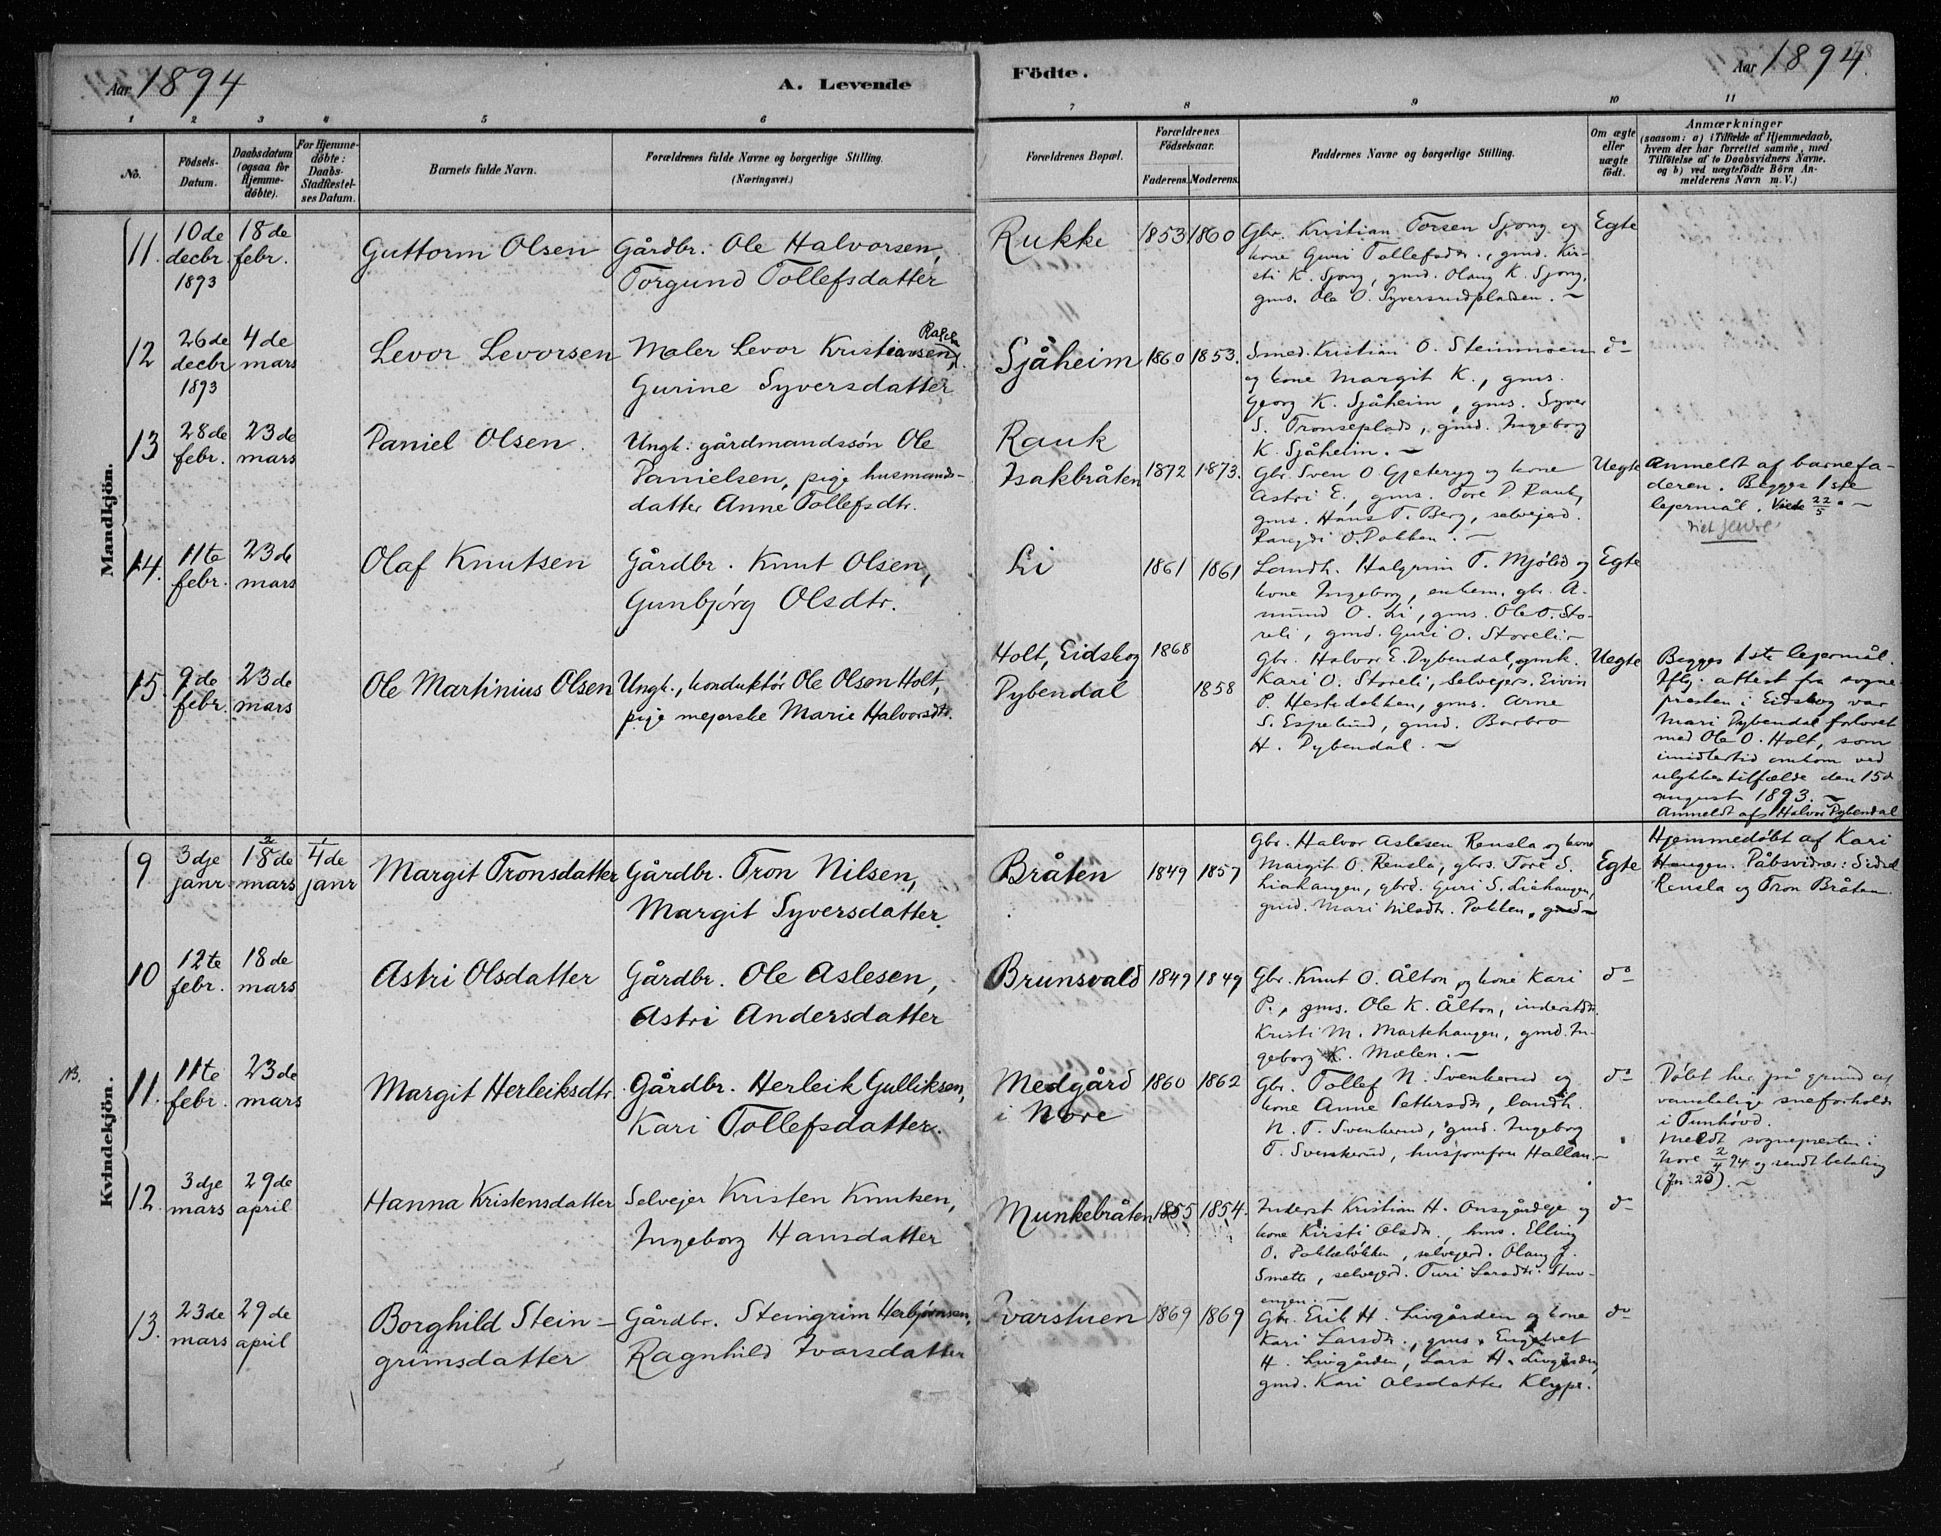 Aar 1894
A. Levende
Födte.
Aar 1894.
78
1 2 3 4 5 6 7 8 9 10 11
No.
Födsels-
Datum.
Daabsdatum
(ogsaa for
Hjemme-
döbte).
For Hjemme-
döbte:
Daabs-
Stadfæstel-
ses Datum.
Barnets fulde Navn.
Forældrenes fulde Navne og borgerlige Stilling.
(Næringsvei.)
Forældrenes Bopæl.
Forældrenes
Födselsaar.
Faderens. Moderens.
Faddernes Navne og borgerlige Stilling.
Om ægte
eller
uægte
födt.
Anmærkninger
(saasom: a) i Tilfælde af Hjemmedaab,
hvem der har forrettet samme, med
Tilföielse af to Daabsvidners Navne.
og b) ved uægtefödte Börn An-
melderens Navn m. V.)
Mandkjön.
11.
10de
decbr.
1893
18de
febr.
Guttorm Olsen
Gårdbr. Ole Halvorsen,
Torgund Tollefsdatter
Rukke
1853
1860
Gbr. Kristian Torsen Sjong og
kone Guri Tollefsdr., gmd. Kir-
sti K. Sjong, gmd. Olaug K. Sjong,
gms. Ole O. Syversrudpladsen. –
Egte
12
26de
decbr
1893
4de
mars
Levor Levorsen
Maler Levor Kristiansen
Gurine Syversdatter
Sjåheim
1860
1853.
Smed Kristian O. Steinmoen
og kone Margit K., gms.
Georg K. Sjåheim, gms. Syver
S. Tronseplads, gmd. Ingeborg
K. Sjåheim. –
do
13
28de
febr.
23de
mars
Daniel Olsen.
Ungk. gårdmandssøn Ole
Danielsen, pige husmands-
datter Anne Tollefsdtr.
Rauk
Isakbråten
1872
1873.
Gbr. Sven O Gjeteryg og kone
Astri E., gms. Tore D Rauk,
gms. Hans T. Berg, selvejerd.
O. Dokken. –
Uegte
Anmeldt af barnefa-
deren. Begges 1ste
lejermål. Viede 22/5. –
14.
11te
febr.
23de
mars
Olaf Knutsen
Gårdbr. Knut Olsen,
Gunbjørg Olsdtr.
Li
1861
1861
Landh. Halgrim T. Mjølid og
kone Ingeborg, enkem. gbr. A-
mund O. Li, gms. Ole O. Sto-
reli, gmd. Guri O. Storeli –
Egte
15.
9de
febr.
23de
mars
Ole Martinius Olsen
Ungk., konduktør Ole Olsen Holt,
pige mejerske Marie Halvorsdtr.
Holt, Eidskog
Dybendal
1868
1858
Gbr. Halvor E. Dybendal, gmk.
Kari O. Storeli, selvejers. Eivin
P. Hestedokken, gms. Arne
S. Espelund, gmd. Barbro
H. Dybendal. –
Uegte
Begges 1ste lejermål.
Iflg. attest fra sogne-
presten i Eidskog var
Mari Dybendal forlovet
med Ole O. Holt, som
imidlertid omkom ved
ulykkestilfælde den 15de
august 1893. –
Anmeldt af Halvor Dybendal
Kvindekjön.
9
3dje
janr.
18de
mars
4de
janr
Margit Tronsdatter
Gårdbr. Tron Nilsen,
Margit Syversdatter.
Bråten
1849
1857
Gbr. Halvor Aslesen Rensla og kone
Margit O. Rensla, gbrs. Tore S.
Liahaugen, gbrd. Guri S. Liahaugen,
gmd. Mari Nilsdtr. Dokken, gmd –
Egte
Hjemmedøbt af Kari
Haugen. Dåbsvidner: Sidsel
Rensla og Tron Bråten.
10
12te
febr.
18de
mars
Astri Olsdatter
Gårdbr. Ole Aslesen,
Astri Andersdatter
Brunsvald
1849
1849
Gbr. Knut O. Ålton og kone Kari
P., gms. Ole K. Ålton, inderstdtr.
Kristi M. Martehaugen, gmd. In-
geborg K. Mælen. –
do
NB.
11.
11te
febr.
23de
mars
Margit Herleiksdtr.
Gårdbr. Herleik Gulliksen,
Kari Tollefsdatter.
Medgård
i Nore
1860
1862
Gbr. Tollef N. Svenkerud og
kone Anne Pettersdtr, landh.
N. T. Svenkerud, gmd. Ingeborg
T. Svenkerud, husjomfru Hallan –
do
Døbt her på grund af
vanskelige sneforholde
i Tunhövd.
Meldt sognepresten i
Nore 2/4 94 og sendt betaling
(Jn. 25). –
12.
3dje
mars
29de
april
Hanna Kristensdatter
Selvejer Kristen Knutsen,
Ingeborg Hansdatter
Munkebråten
1855
1854.
Inderst Kristian H. Onsgårdeje og
kone Kirsti Olsdtr., hms. Elling
O. Dokkeløkken, selvejerd. Olaug J.
Smette, selvejerd. Turi Larsdtr. Stuv-
engen. –
do
13.
23de
mars
29de
april
Borghild Stein-
grimsdatter
Gårdbr. Steingrim Herbjørnsen,
Ragnhild Ivarsdatter
Ivarstuen
1869
1869
Gbr. Erik H. Livgården og kone
Kari Larsdtr., gms. Engebret
H. Livgården, Lars H. Livgården,
gmd. Kari Olsdatter Klype.
do